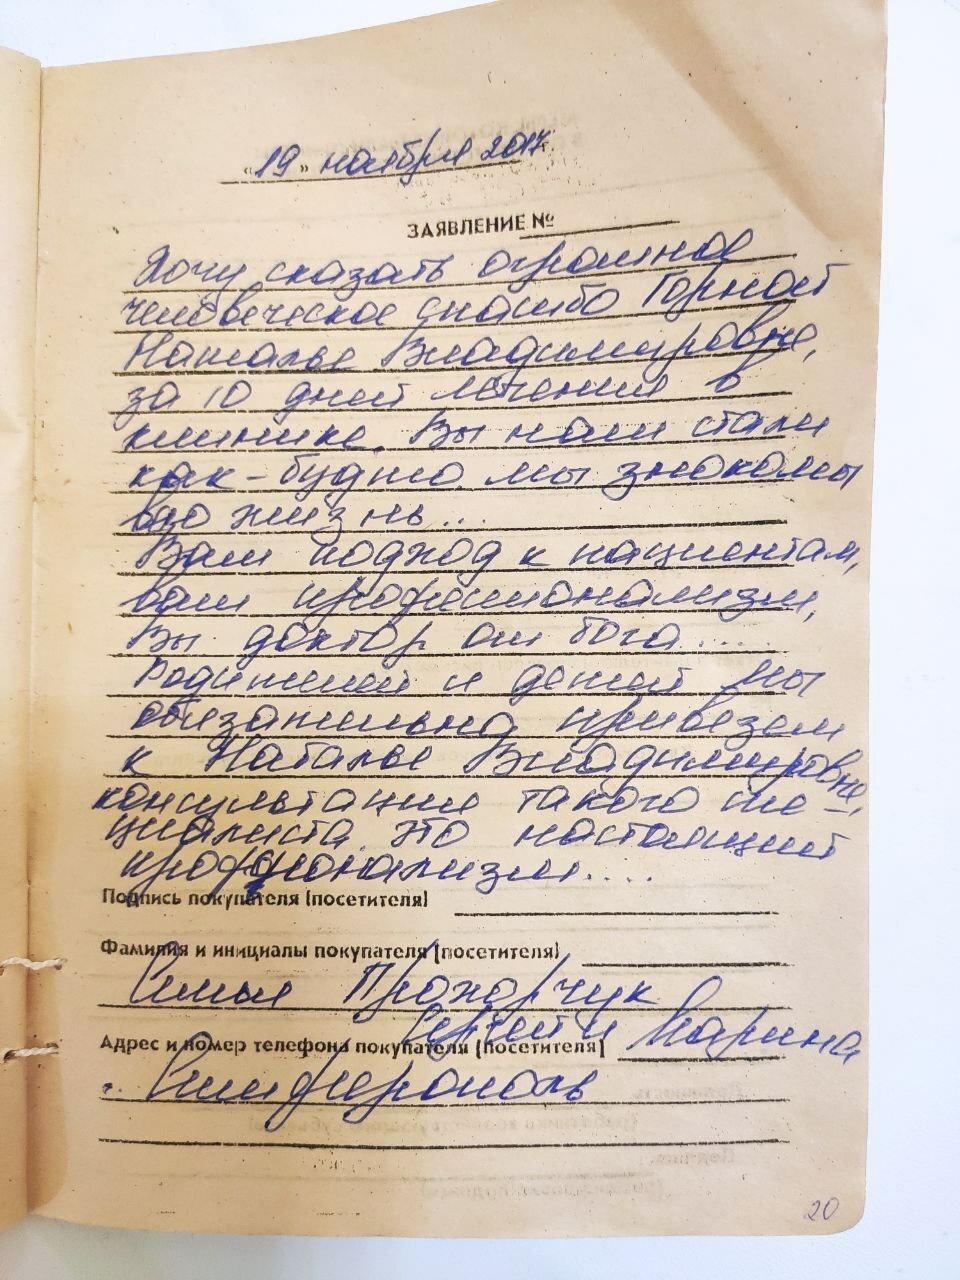 «19» ноября 2017г.
ЗАЯВЛЕНИЕ №
Хочу сказать огромное
человеческое спасибо Горной
Наталье Владимировне,
за 10 дней лечения в
клинике. Вы нам стали
как-будто мы знакомы
всю жизнь...
Ваш подход к пациентам,
ваш профессионализм,
Вы доктор от бога.....
Родителей и детей мы
обязательно привезем
к Наталье Владимировне,
консультация такого спе-
циалиста это настоящий
професионализм....
Подпись покупателя (посетителя)
Фамилия и инициалы покупателя (посетителя)
Семья Прохорчук
Сергей и Марина
Адрес и номер телефона покупателя (посетителя)
г. Симферополь
20